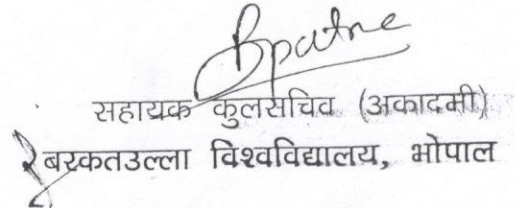 सहायक कुलसचिव (अकादमी)
बरकतउल्ला विश्वविद्यालय, भोपाल